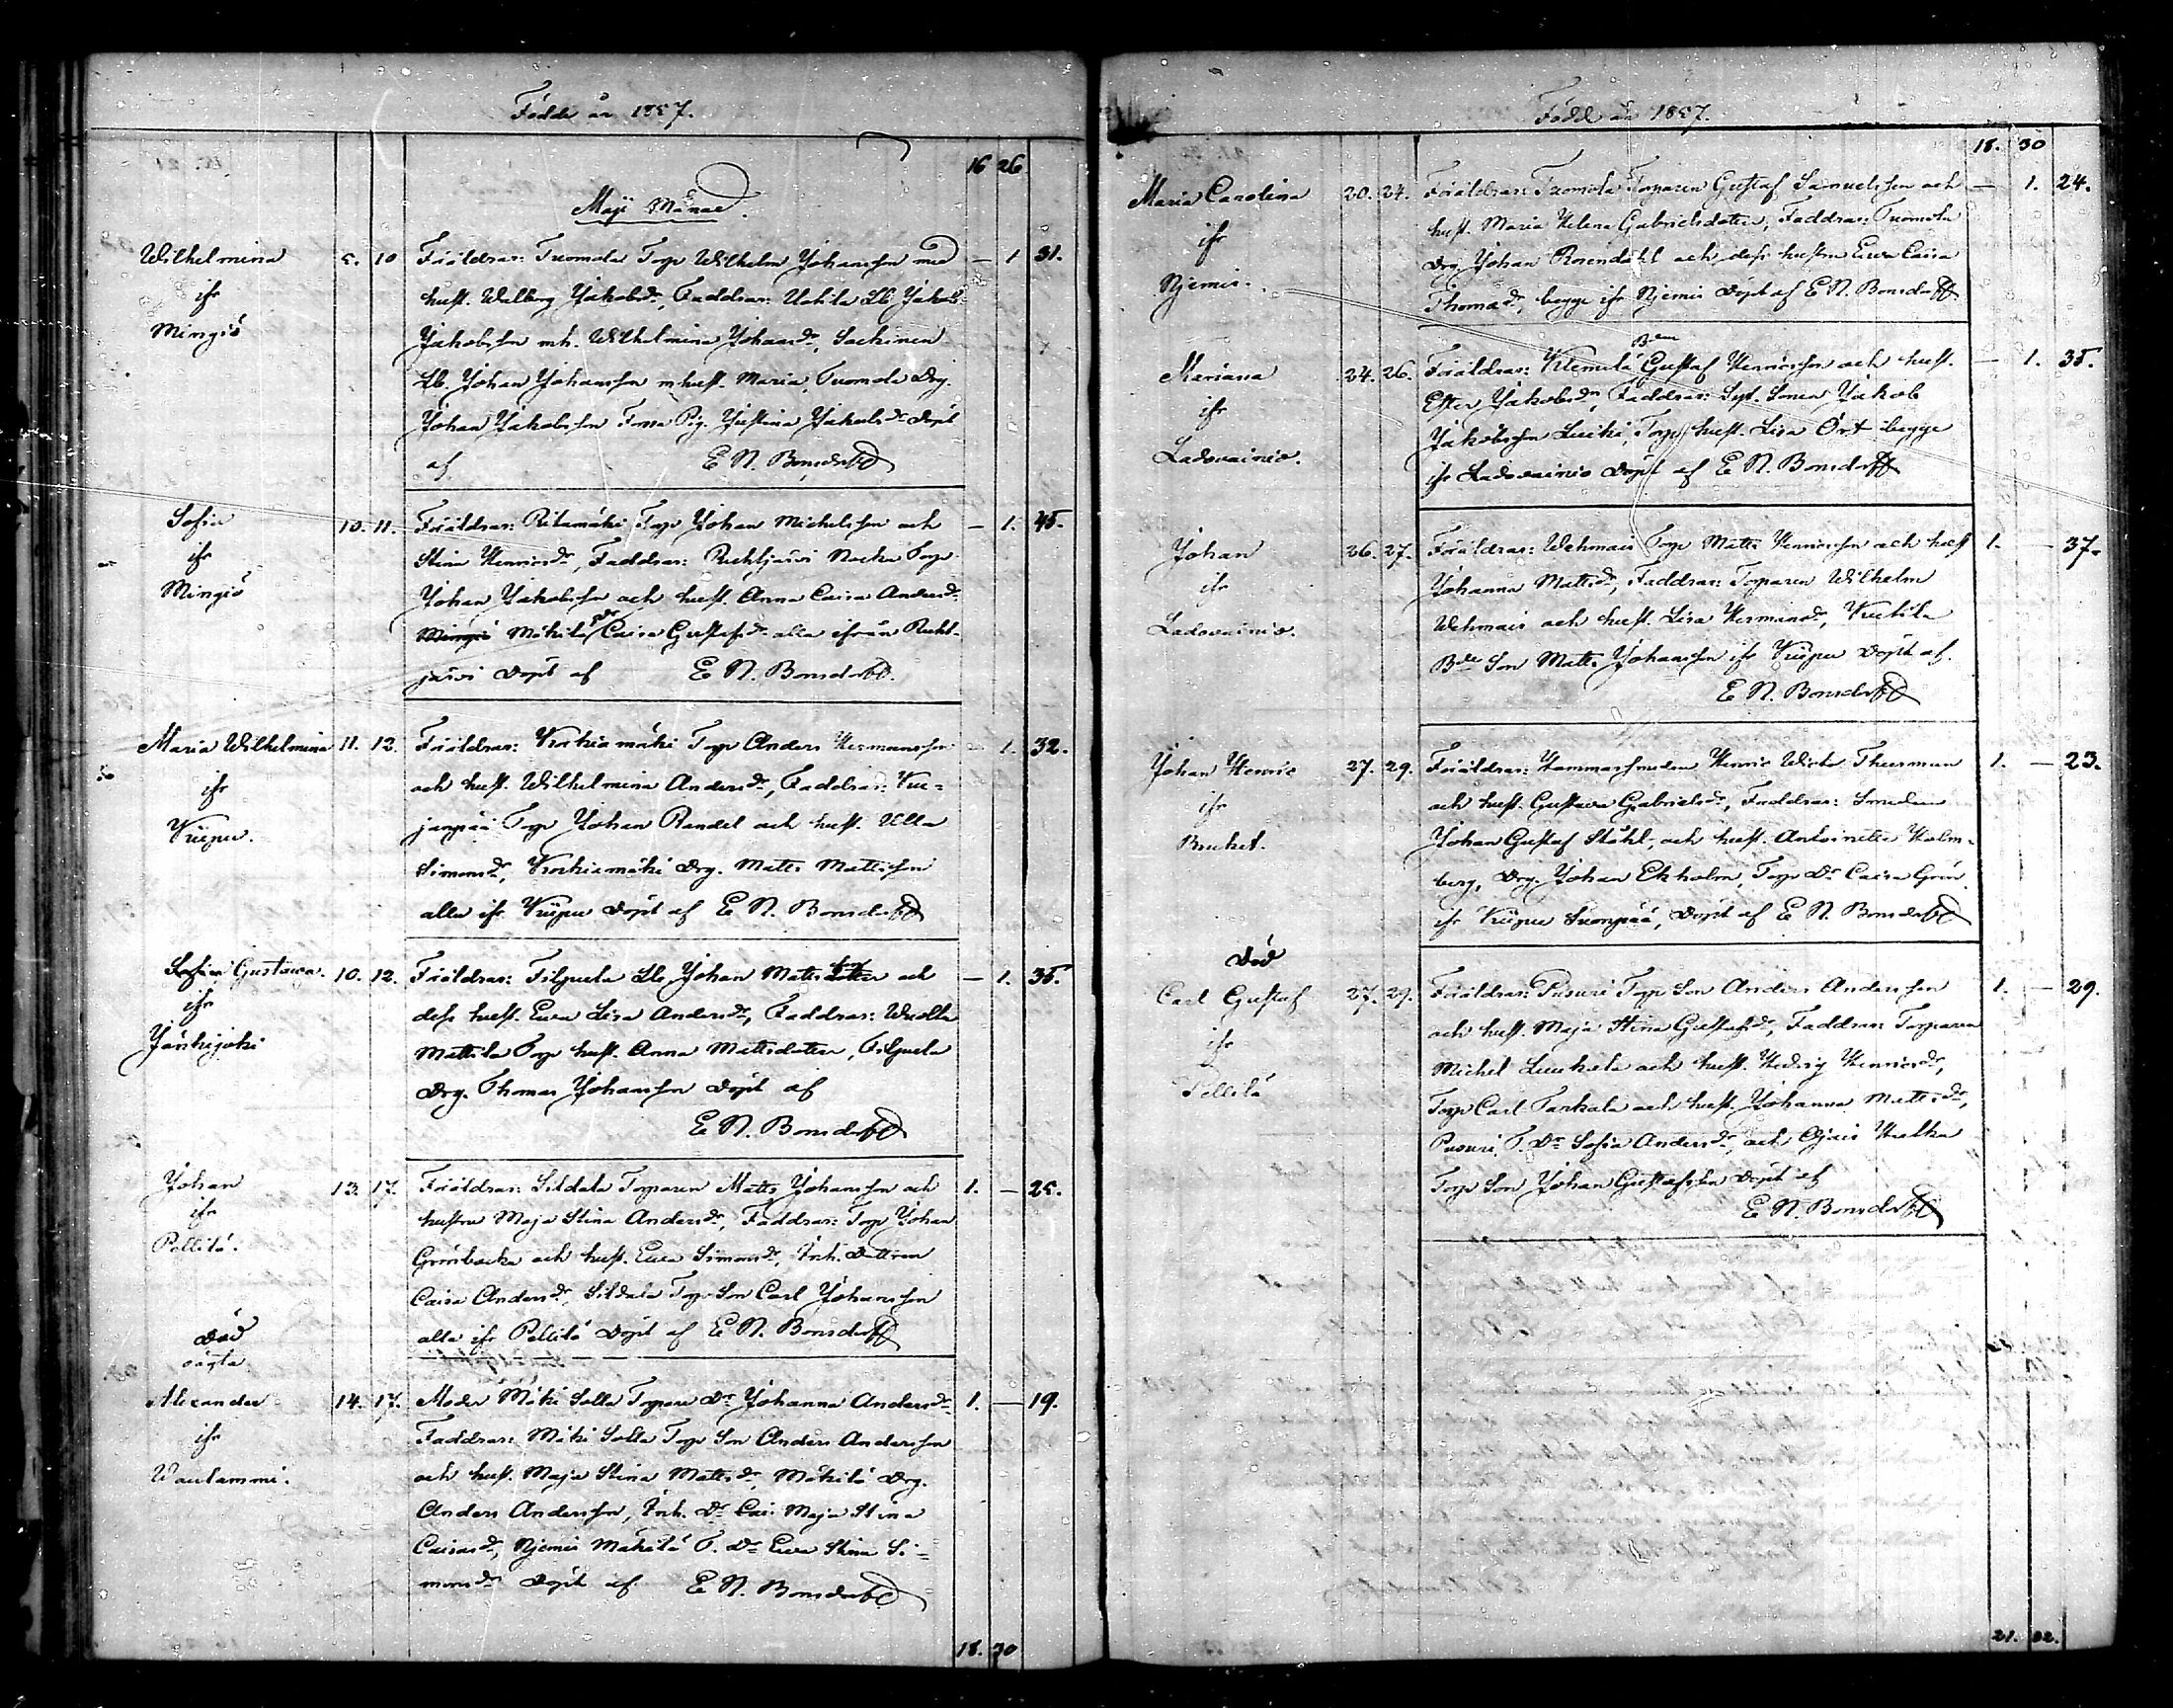 Födde år 1857.
16 26
Maji Månad.
Wilhelmina 5. 10 Föräldrar: Tuomola Torp Wilhelm Johansson med — 1 31.
ifr hust. Walborg Jakobsdr, Faddrar: Uotila Lb. Jakob
Mingiö Jakobsson mh. Wilhelmina Johansdr, Sackinen
Lb. Johan Johansson m hust. Maria, Tuomola Drg.
Johan Jakobsson Pig. Justina Jakobsdr Döpt
af E N. Bonsdorff
Sofia 10. 11. Föräldrar: Ritamäki Torp Johan Michelsson och — 1. 45.
ifr Stina Henricsdr, Faddrar: Ruchtjärvi Torp
Mingiö Johan Jakobsson och hust. Anna Caisa Andersdr
Mingiö Mäkilä Dr Caisa Gustafsdr alla ifrån Rucht-
järvi Döpt af E N. Bonsdorff.
Maria Wilhelmina 11. 12. Föräldrar: Korkiamäki Torp Anders Hermansson — 1. 32.
ifr och hust. Wilhelmina Andersdr, Faddrar:
Kiipu. Torp Johan Randel och hust. Ulla
Simonsdr, Korkiamäki Drg. Matts Mattsson
alla ifr Kiipu Döpt af E N. Bonsdorff
Sofia Gustava. 10. 12. Föräldrar: Filpula Lb Johan Mattsson och — 1. 35.
ifr dess hust. Ewa Lisa Andersdr, Faddrar:
Jänhijoki Mattila Torp hust. Anna Mattsdotter, Filpula
Drg. Thomas Johansson Döpt af
E N. Bonsdorff
Johan 13. 17. Föräldrar: Sildala Torparen Matts Johansson och 1. — 25.
ifr hustru Maja Stina Andersdr, Faddrar: Torp Johan
Pellilä. Grönbacka och hust. Ewa Simonsdr, Inh. Dottren
Caisa Andersdr, Sildala Torp Son Carl Johansson
Död alla ifr Pellilä Döpt af E N. Bonsdorff
oägta
Alexander 14. 17. Moder Mäki Solla Torpare Dr Johanna Andersdr 1. — 19.
ifr Faddrar: Mäki Solla Torp Son Anders Andersson
Waulammi. och hust. Maja Stina Mattsdr, Mäkilä Drg.
Anders Andersson, Inh. Dr Maja Stina
Caisasdr, Njemis Mäkilä T. Dr Ewa Stina Si-
monsdr Döpt af E N. Bonsdorff
18. 30
Född år 1857.
18. 30
Maria Carolina 20. 24. Föräldrar: Tuomola Torparen Gustaf Samuelsson och — 1. 24.
ifr hust. Maria Helena Gabrielsdotter, Faddrar: Tuomola
Njemis. Drg Johan Rosendahl och dess hustru Ewa Caisa
Thomasdr, begge ifr Njemis Döpt af E N. Bonsdorff
Mariana 24. 26. Föräldrar: Klemelä Bden Gustaf Henricsson och hust. — 1. 35.
ifr Ester Jakobsdr, Faddrar: Syt. Sonen Jakob
Ladovainio. Jakobsson Torp hust. Lisa Ört begge
ifr Ladovainio Döpt af E N. Bonsdorff
Johan 26. 27. Föräldrar: Wehmais Torp Matts Henricsson och hust 1. — 37.
ifr Johanna Mattsdr, Faddrar: Torparen Wilhelm
Ladovainio. Wehmais och hust. Lisa Hermansdr,
Bde Son Matts Johansson ifr Kiipu Döpt af.
E N. Bonsdorff
Johan Henric 27. 29. Föräldrar: Hammarsmeden Henric Thurman 1. — 23.
ifr och hust. Gustava Gabrielsdr, Faddrar: Smeden
Bruket. Johan Gustaf Ståhl, och hust. Antoinette Holm-
berg, Drg. Johan Ekholm, Torp Dr Caisa Grön
ifr Kiipu Suonpää, Döpt af E N. Bonsdorff
Död
Carl Gustaf 27. 29. Föräldrar: Pusuri Torp Son Anders Andersson 1. — 29.
ifr och hust. Maja Stina Gustafsdr, Faddrar: Torparen
Pellilä Michel och hust. Hedvig Henricsdr,
Torp Carl Tarkala och hust. Johanna Mattsdr,
Pusuri T. Dr Sofia Andersdr, och
Torp Son Johan Gustafsson Döpt af
E N. Bonsdorff
21. 32.